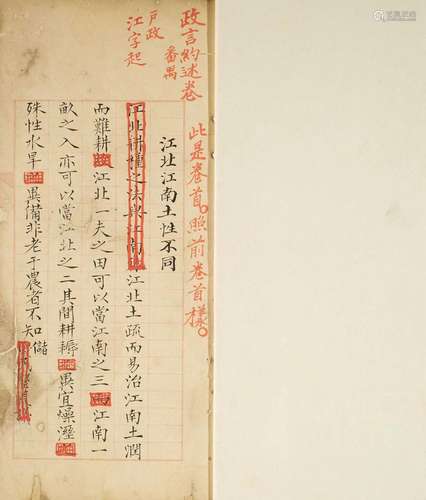 政言約述卷
番禺
戶政
江字起
此是卷首。照前卷首樣。
江北江南土性不同
江北耕種之法與江南江北土疏而易治江南土潤
而難耕江北一夫之田可以當江南之三江南一
畝之入亦可以當江北之二其間耕耨異宜燥溼
殊性水旱異備非老于農者不知儲